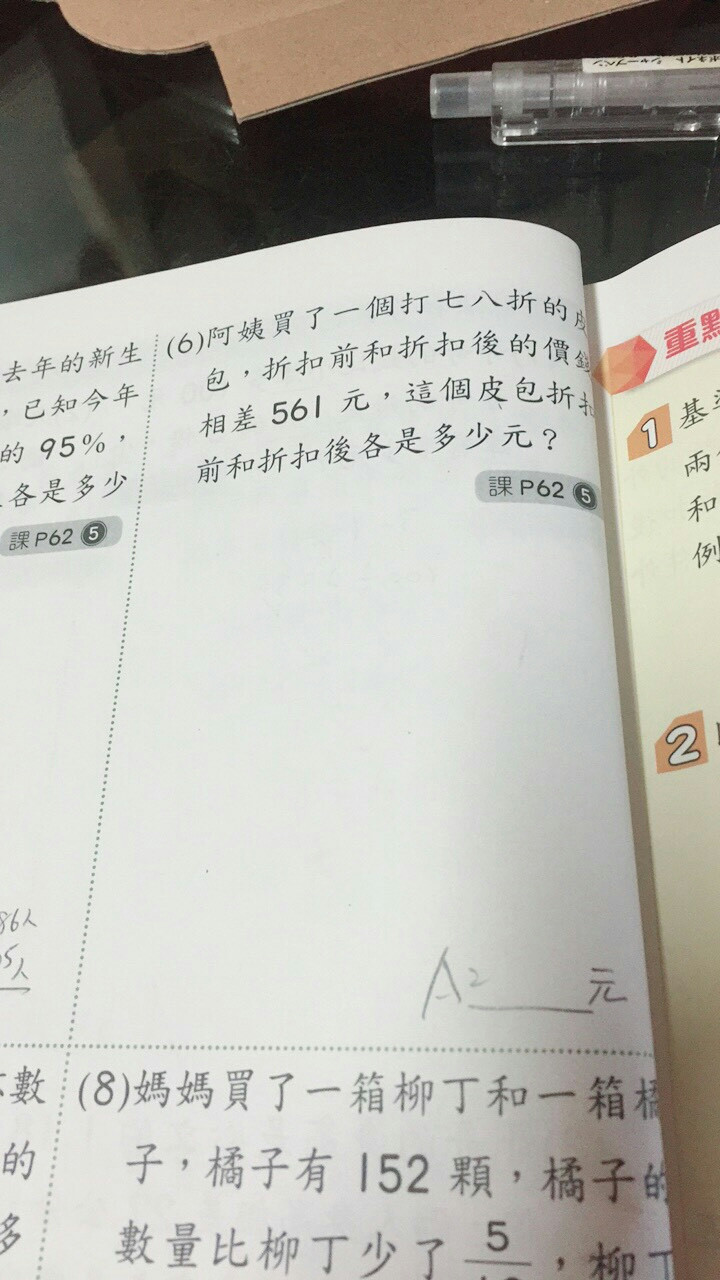 去年的新生
，已知今年
的 95%，
各是多少
課P62 5
86人
5人
(6)阿姨買了一個打七八折的皮
包，折扣前和折扣後的價錢
相差 561 元，這個皮包折扣
前和折扣後各是多少元？
課P62 5
A: 元
數
的
多
(8)媽媽買了一箱柳丁和一箱橘
子，橘子有 152 顆，橘子的
數量比柳丁少了 5，柳丁
重點
1 基
兩
和
例
2